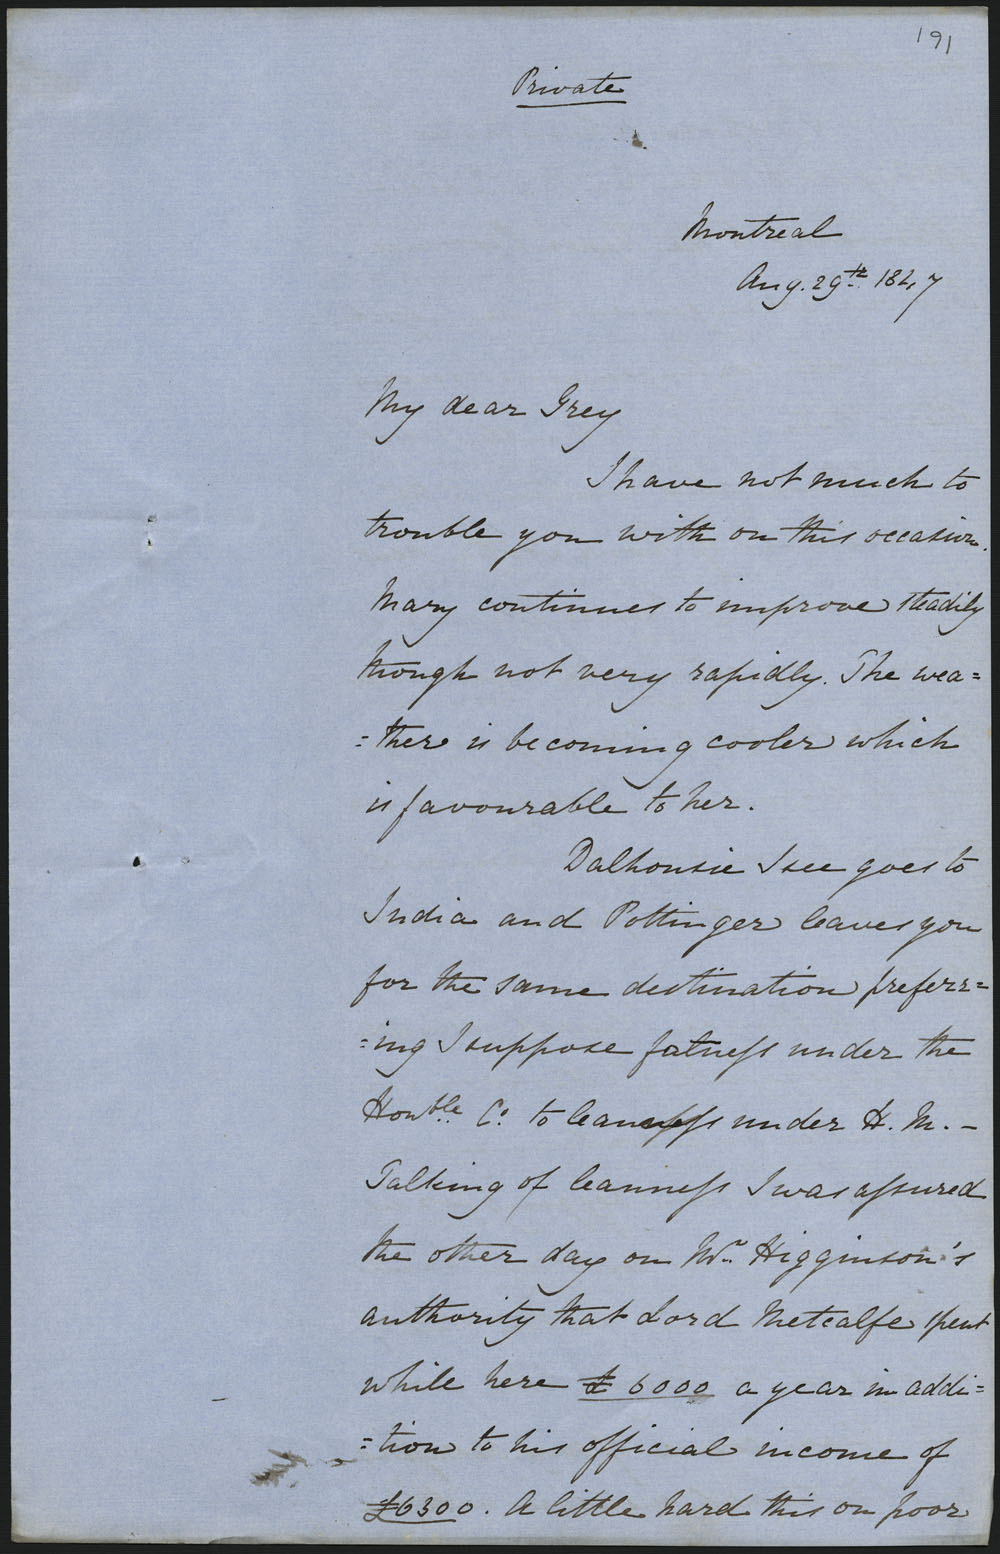 191
Private
Montreal
Aug. 29th 1847
My dear Grey
I have not much to
trouble you with on this occasion.
Mary continues to improve steadily
though not very rapidly. The wea=
=ther is becoming cooler which
is favourable to her.
Dalhousie I see goes to
India and Pottinger leaves you
for the same destination preferr=
=ing I suppose fatness under the
Honble. Co. to leanness under H. M. –
Talking of leanness I was assured
the other day on Mr. Higginson's
authority that Lord Metcalfe spent
while here £6000 a year in addi=
=tion to his official income of
£6300. A little hard this on poor